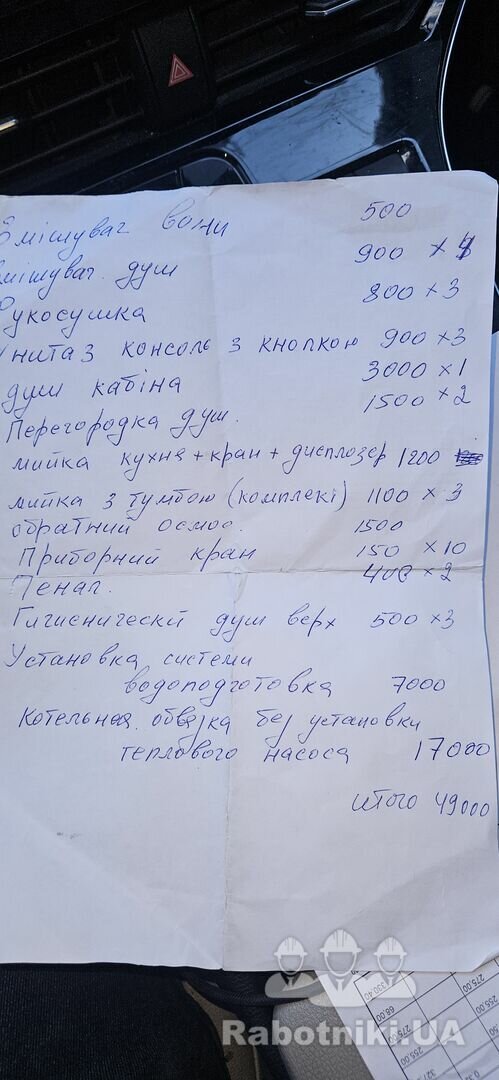 Змішувач вони 500
Змішувач. душ 900 × 4
Рукосушка 800 × 3
Унитаз консоль з кнопкою 900 × 3
душ кабіна 3000 × 1
Перегородка душ. 1500 × 2
мийка кухня + кран + диспозер 1200
мийка з тумбою (комплекі) 1100 × 3
обратний осмос. 1500
Приборний кран 150 × 10
Пенал. 400 × 2
Гигиенический душ верх 500 × 3
Установка системи
водоподготовка 7000
Котельная обвязка без установки
теплового насоса 17000
итого 49000
Rabotniki.UA
330.40
275.00
255.00
66.00
275.00
255.00